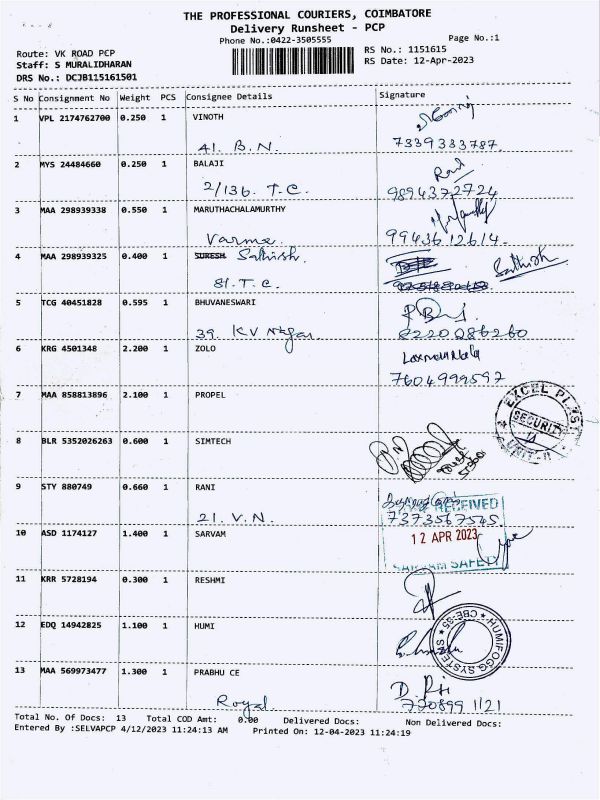 THE PROFESSIONAL COURIERS, COIMBATORE
Delivery Runsheet - PCP
Phone No.:0422-3505555
Page No.:1
Route: VK ROAD PCP
Staff: S MURALIDHARAN
DRS No.: DCJB115161501
RS No.: 1151615
RS Date: 12-Apr-2023
S No Consignment No Weight PCS Consignee Details Signature
1 VPL 2174762700 0.250 1 VINOTH
41. B.N. 7339333787
2 MYS 24484660 0.250 1 BALAJI
2/136. T.C. 9894372724
3 MAA 298939338 0.550 1 MARUTHACHALAMURTHY
Varma 9943612614
4 MAA 298939325 0.400 1 SURESH Sathish. Sathish
81. T.C.
5 TCG 40451828 0.595 1 BHUVANESWARI
39. KV Nagar 8220086260
6 KRG 4501348 2.200 1 ZOLO
7604999597
7 MAA 858813896 2.100 1 PROPEL
EXCEL PLAST
SECURITY
UNIT-II
8 BLR 5352026263 0.600 1 SIMTECH
9 STY 880749 0.660 1 RANI
RECEIVED
21. V.N. 7373567545
10 ASD 1174127 1.400 1 SARVAM
12 APR 2023
SAFETY
11 KRR 5728194 0.300 1 RESHMI
12 EDQ 14942825 1.100 1 HUMI
HUMIFOGG SYSTEMS
CBE-35
13 MAA 569973477 1.300 1 PRABHU CE
Royal
Total No. Of Docs: 13 Total COD Amt: 0.00 Delivered Docs: Non Delivered Docs:
Entered By :SELVAPCP 4/12/2023 11:24:13 AM Printed On: 12-04-2023 11:24:19